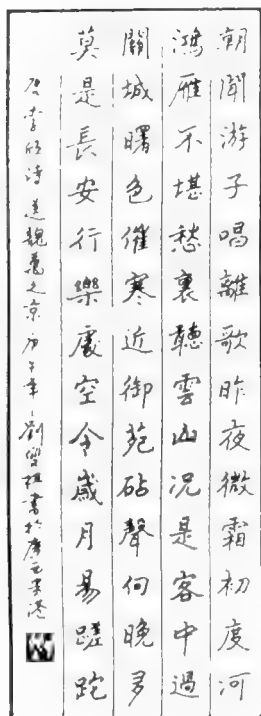 朝聞游子唱離歌昨夜微霜初度河
鴻雁不堪愁裏聽雲山況是客中過
關城曙色催寒近御苑砧聲向晚多
莫是長安行樂處空令歲月易蹉跎
李頎詩送魏萬之京庚午年劉雙柱書於廣元